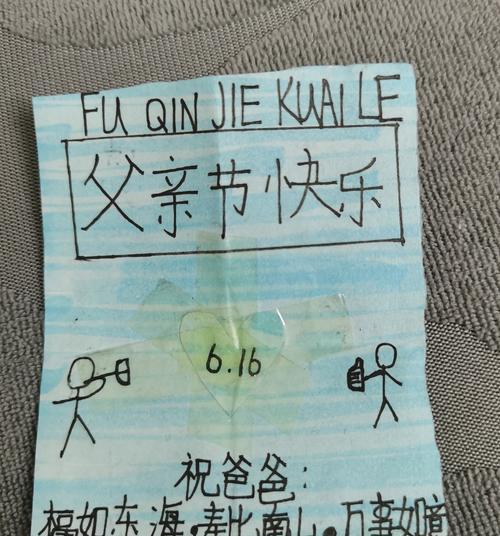 FU QIN JIE KUAI LE
父亲节快乐
6.16
祝爸爸:
福如东海.寿比南山.万事如意